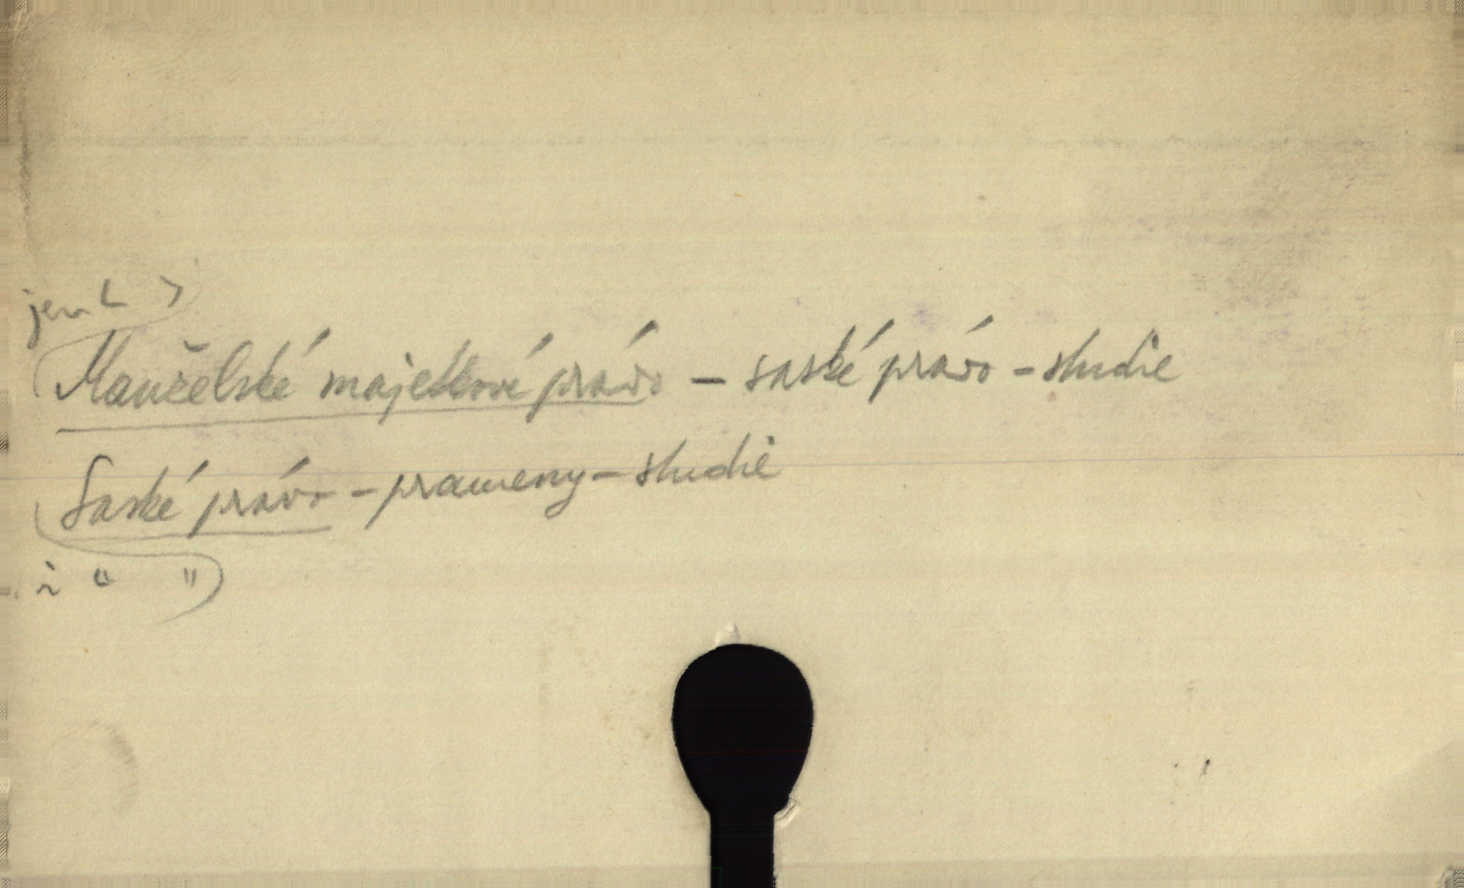 jen < >
Manželské majetkové právo – saské právo – studie
Saské právo – prameny – studie
i " "